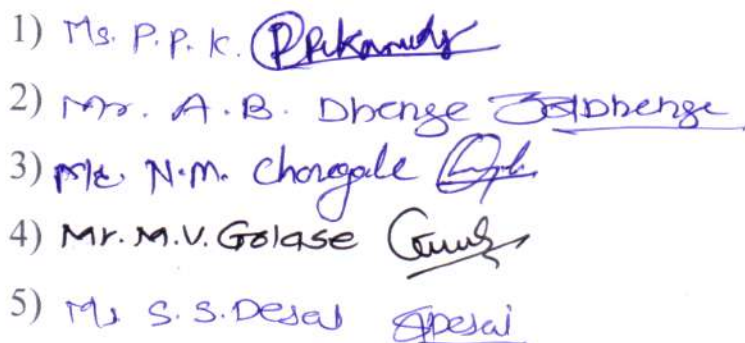 1) Ms. P. P. K.
2) Mr. A. B. Dhenge Dhenge
3) N. M. Chougale
4) Mr. M. V. Golase
5) Ms S. S. Desai Desai